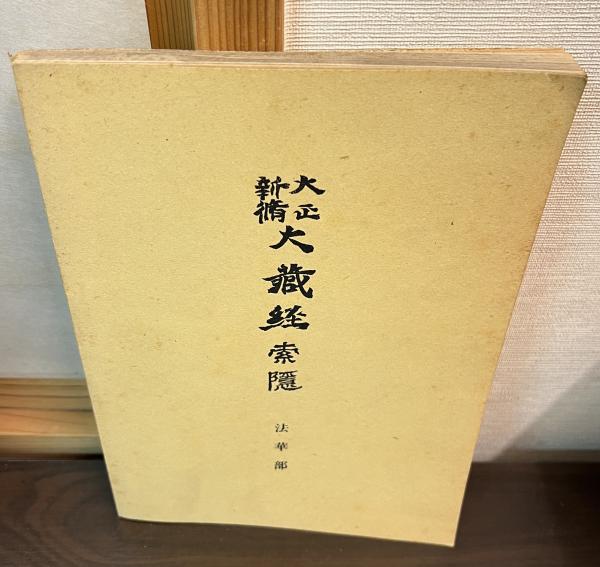 大正
新脩
大藏経索隱
法華部